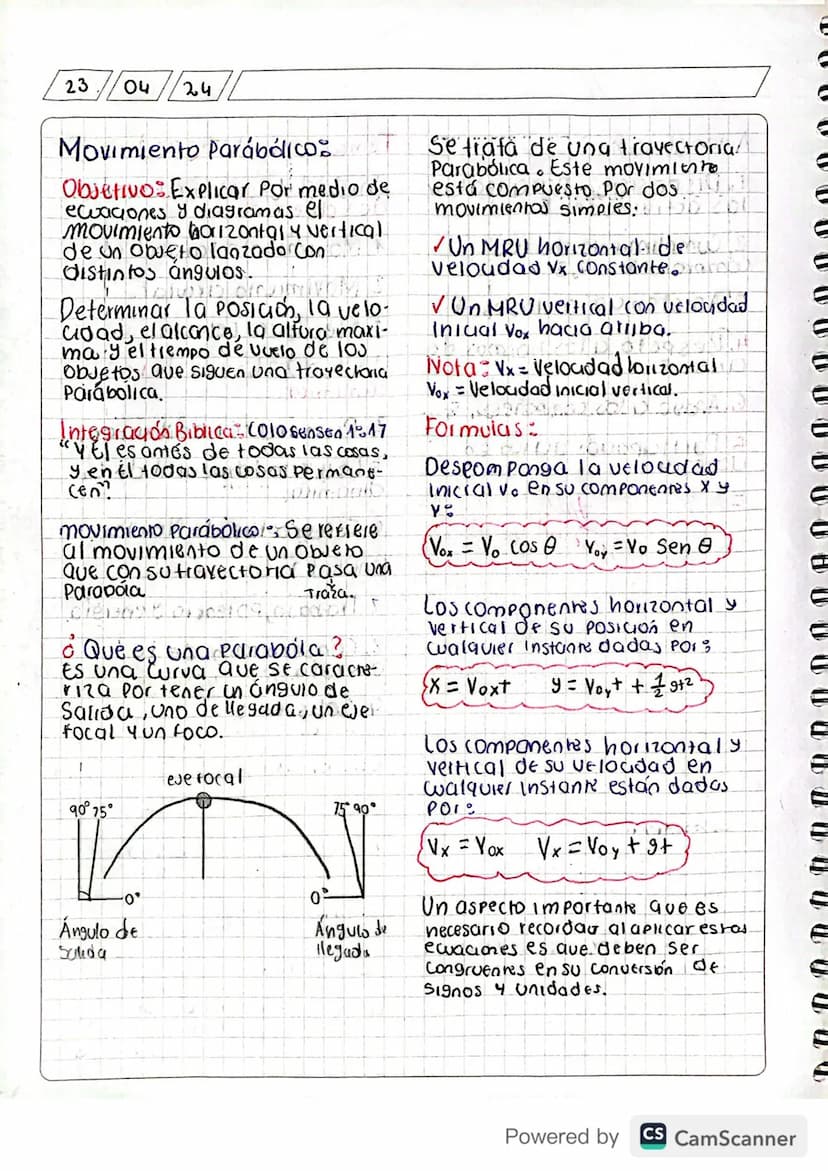 23 / 04 / 24
Movimiento Parábólico:
Objetivo: Explicar por medio de
ecuaciones y diagramas el
movimiento horizontal y vertical
de un objeto lanzado con
distintos ángulos.
Determinar la posición, la velo-
cidad, el alcance, la altura maxi-
ma y el tiempo de vuelo de los
objetos que siguen una trayectoria
Parábolica.
Integración Biblica: Colosensen 1:17
"y El es antés de todas las cosas,
y en Él todas las cosas permane-
cen".
movimiento parábólico:- Se refiere
al movimiento de un objeto
que con su trayectoria pasa una
Parabóla Traza.
¿ Qué es una parabóla ?
Es una curva que se caracte-
riza por tener un ángulo de
Salida, uno de llegada, un eje
focal y un foco.
eje focal
90° 75°
75° 90°
0°
0°
Ángulo de
Salida
Ángulo de
llegada
Se trata de una trayectoria
Parabólica. Este movimiento
está compuesto por dos
movimientos simples:
✓Un MRU horizontal de
velocidad Vx constante.
✓Un MRU vertical con velocidad
Inicial Vox hacia arriba.
Nota: Vx = Velocidad horizontal
Vox = Velocidad inicial vertical.
Formulas:
Descomponga la velocidad
inicial Vo en su componentes X y
Y:
Vox = Vo cos θ Voy = Vo Sen θ
Los componentes horizontal y
vertical de su posición en
cualquier instante dadas por:
X = Voxt y = Voyt + 1/2 gt²
Los componentes horizontal y
vertical de su velocidad en
cualquier instante están dados
por:
Vx = Vox Vx = Voy + gt
Un aspecto importante que es
necesario recordar al aplicar estas
ecuaciones es que deben ser
congruentes en su conversión de
signos y unidades.
Powered by CS CamScanner